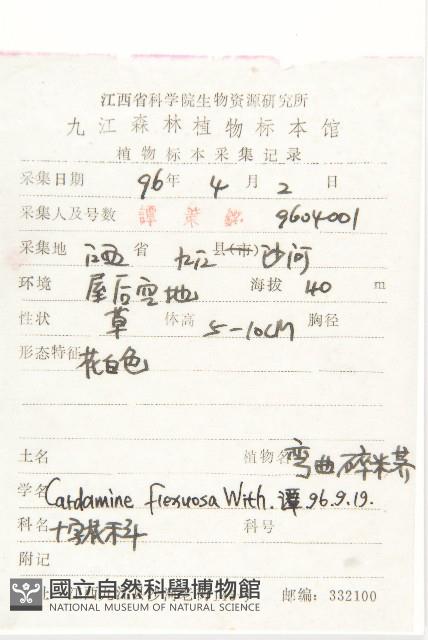 江西省科学院生物资源研究所
九江森林植物标本馆
植物标本采集记录
采集日期 96年 4 月 2 日
采集人及号数 譚策銘 9604001
采集地 江西 省 九江 县(市) 沙河
环境 屋后空地 海拔 40 m
性状 草 体高 5-10CM 胸径
形态特征 花白色
土名 植物名 弯曲碎米荠
学名 Cardamine flexuosa With. 譚 96.9.19.
科名 十字花科 科号
附记
邮编: 332100
國立自然科學博物館
NATIONAL MUSEUM OF NATURAL SCIENCE